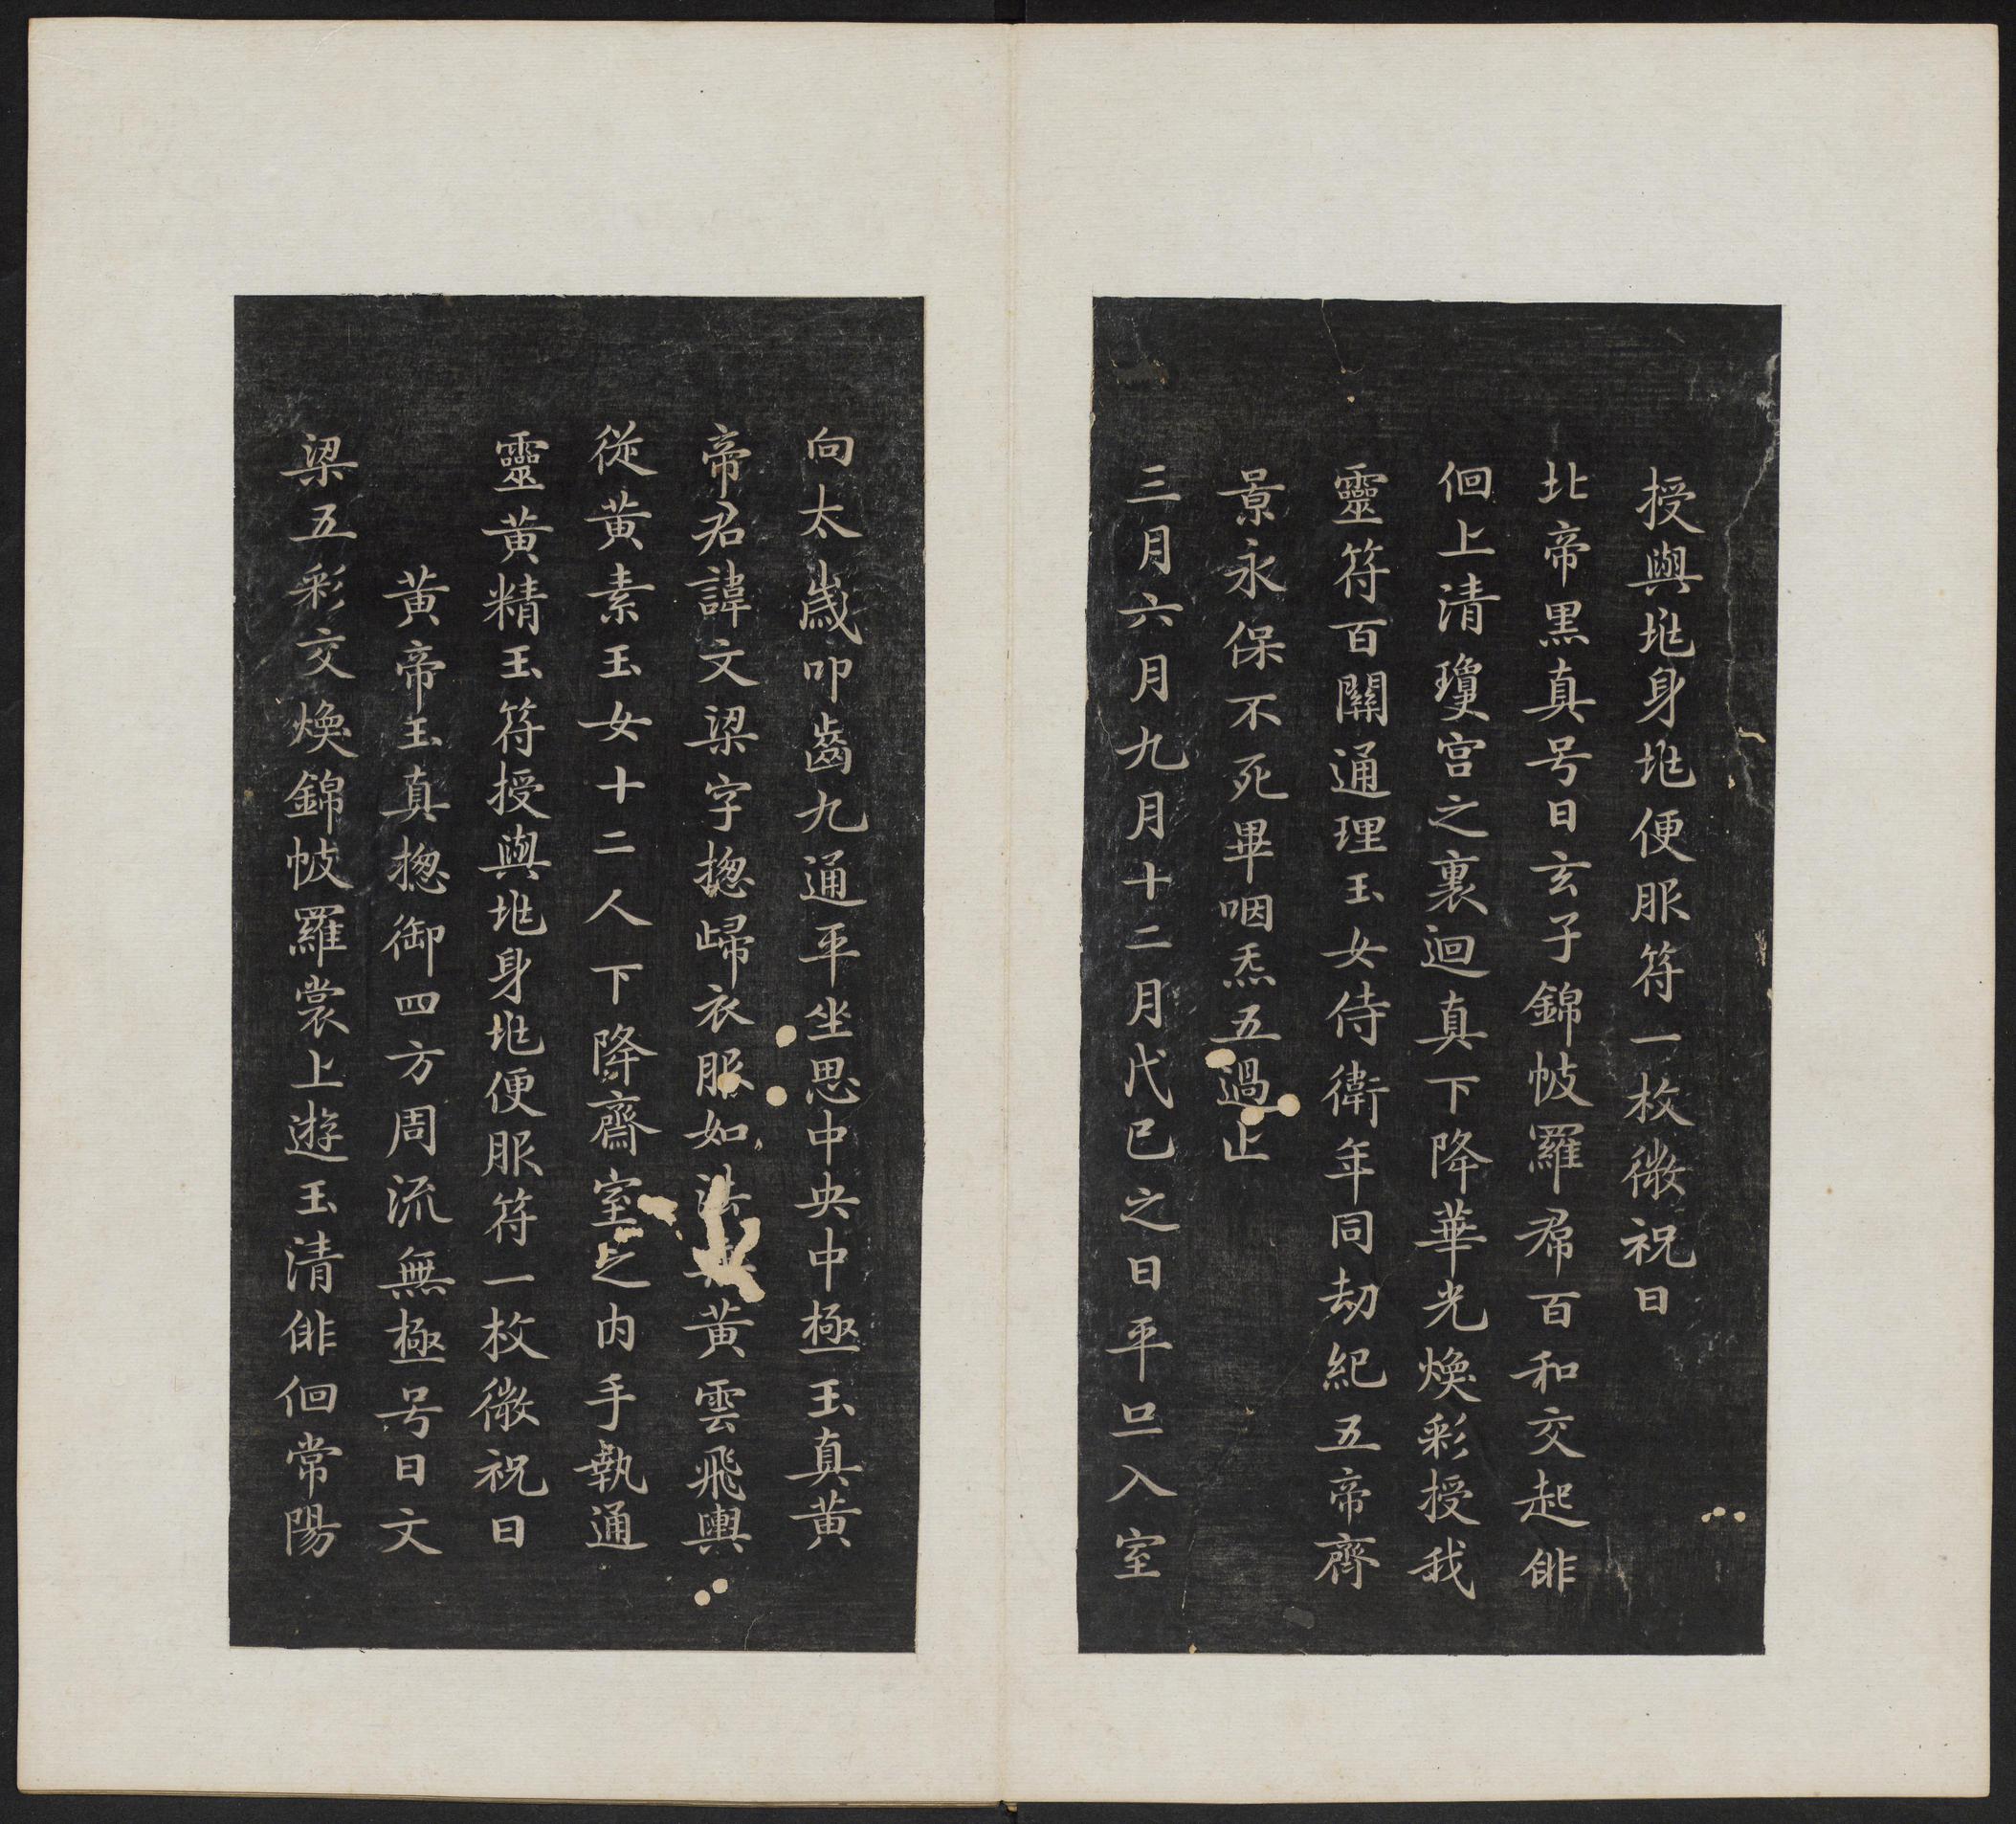 授與㘴身㘴便服符一枚微祝曰
北帝黒真号曰玄子錦帔羅帬百和交起俳
佪上清瓊宫之裏迴真下降華光煥彩授我
靈符百關通理玉女侍衛年同劫紀五帝齊
景永保不死畢咽炁五過止
三月六月九月十二月戊巳之日平旦入室
向太歲叩齒九通平坐思中央中極玉真黄
帝君諱文梁字揔歸衣服如法乘黄雲飛輿
從黄素玉女十二人下降齋室之内手執通
靈黄精玉符授與㘴身㘴便服符一枚微祝曰
黄帝玉真揔御四方周流無極号曰文
梁五彩交煥錦帔羅裳上遊玉清俳佪常陽